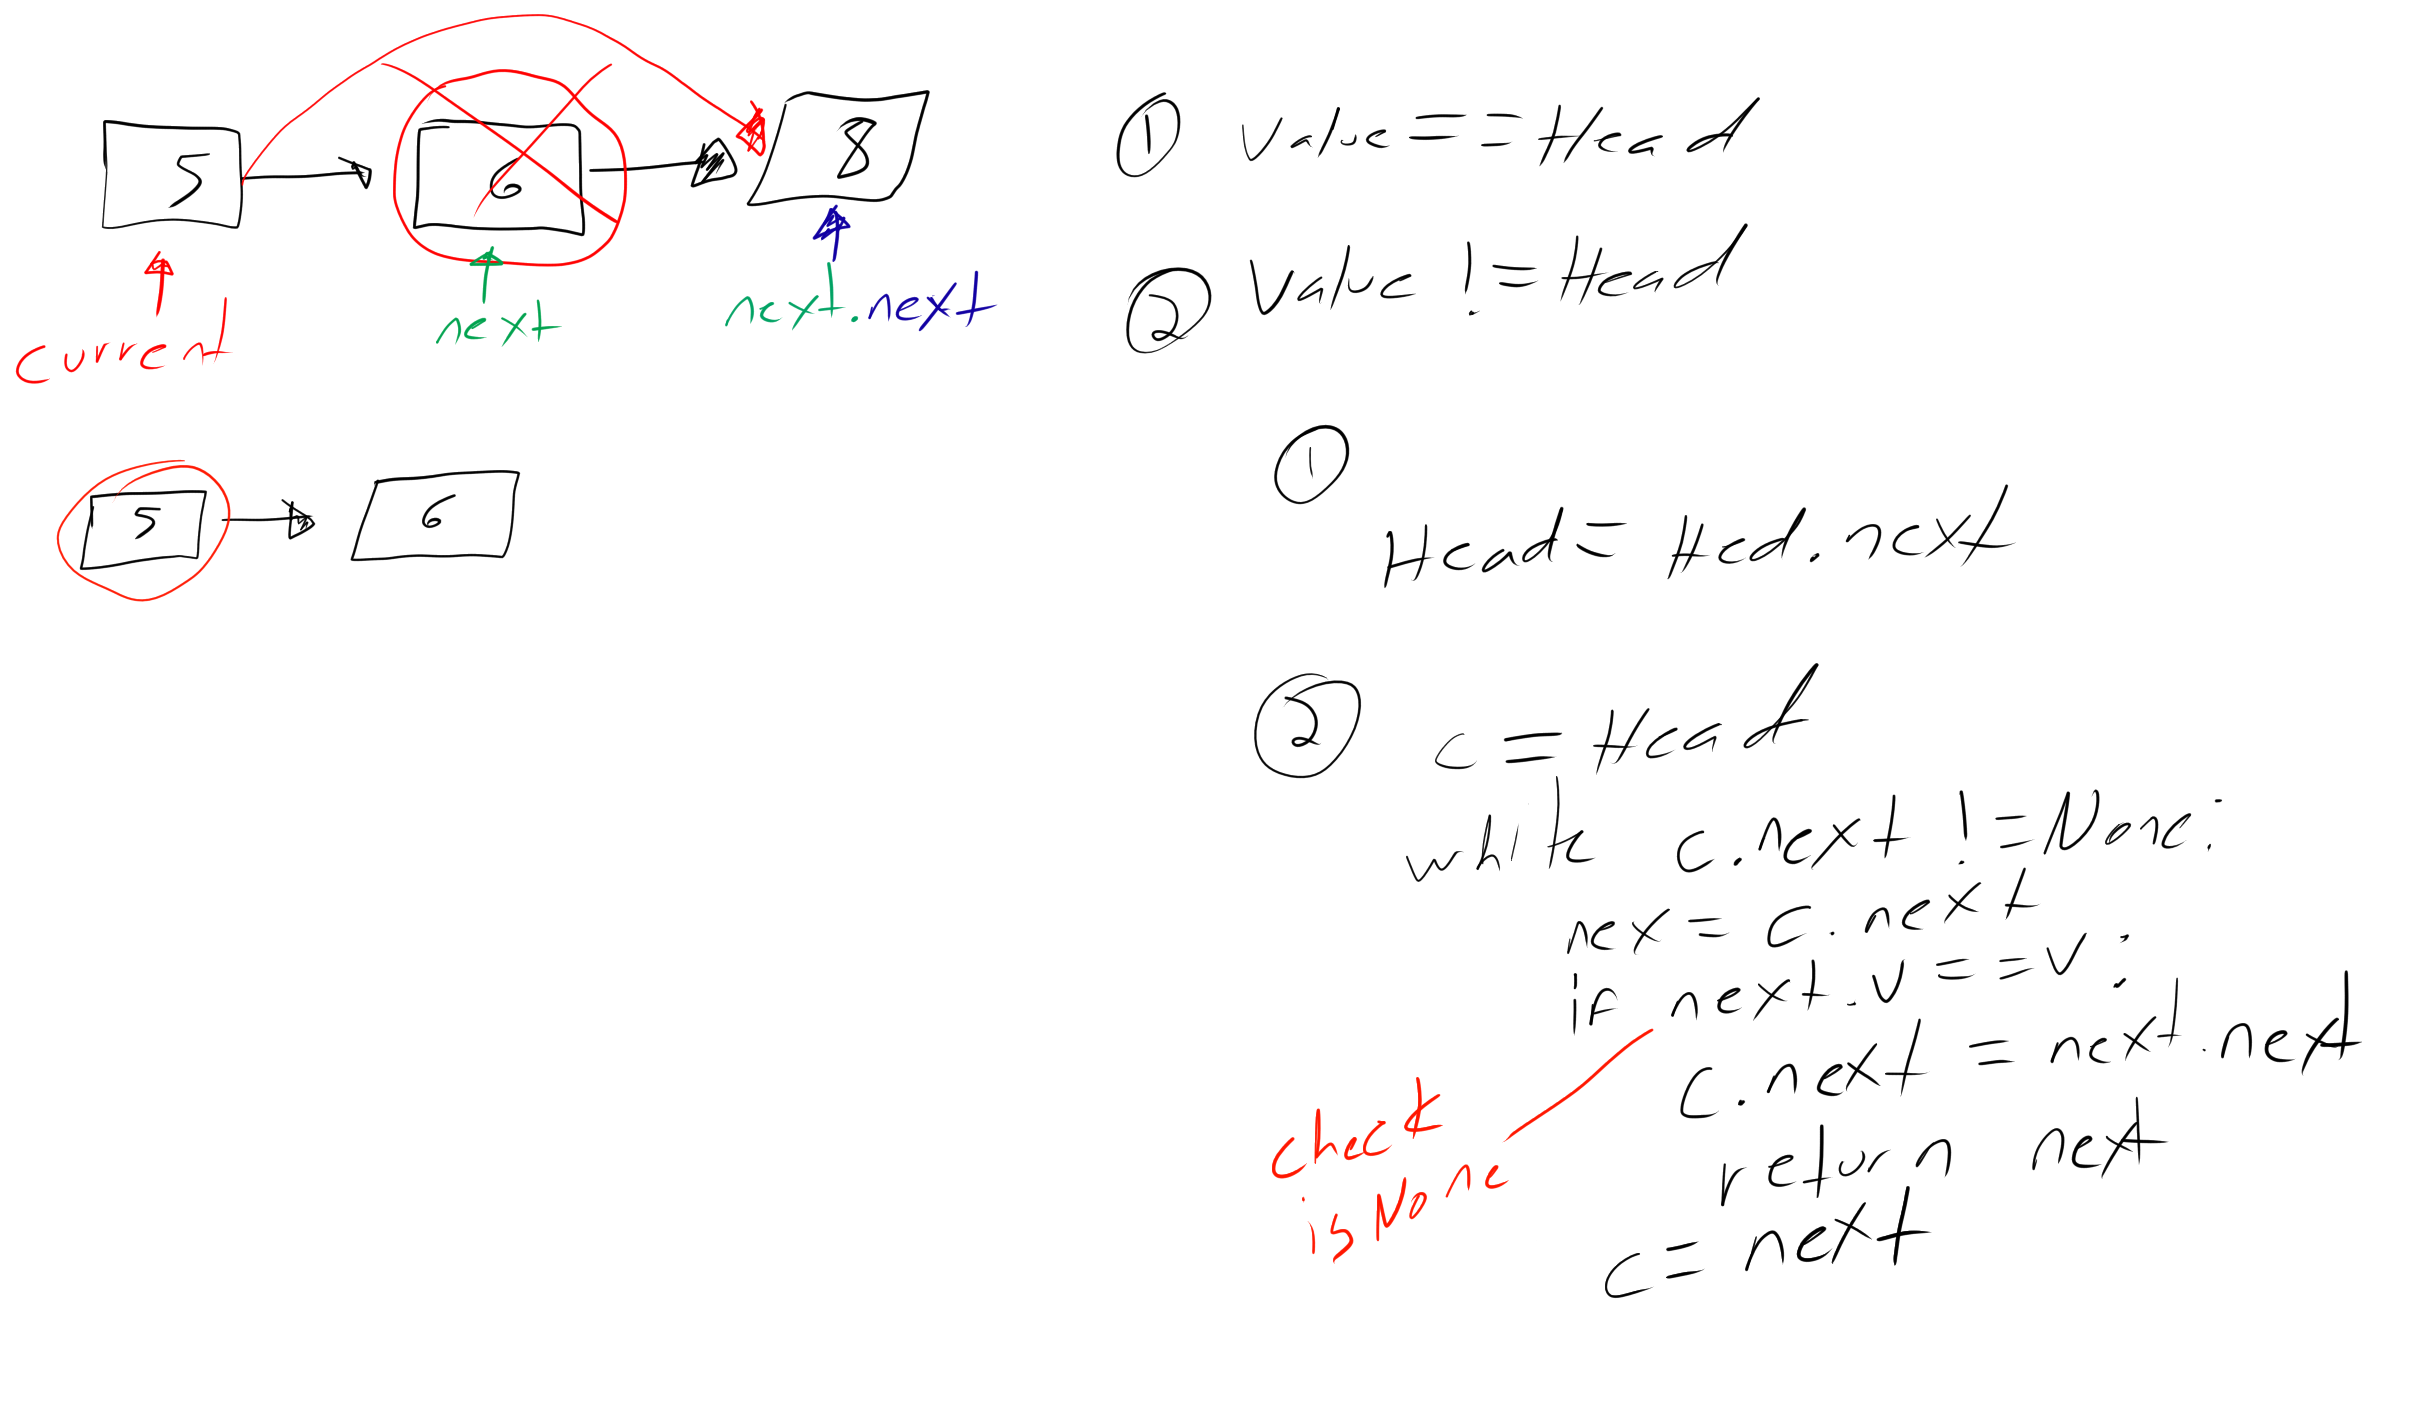 5
6
8
current
next
next.next
5
6
① Value == Head
② Value != Head
①
Head = Hed.next
②
c = Head
while c.next != None:
nex = c.next
if next.v == v:
c.next = next.next
return next
c = next
check
is None